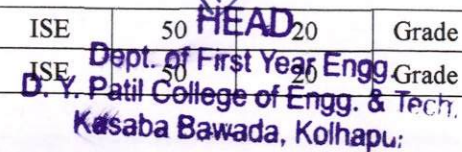 ISE 50 20 Grade
ISE 50 20 Grade
HEAD
Dept. of First Year Engg.
D. Y. Patil College of Engg. & Tech.
Kasaba Bawada, Kolhapu: